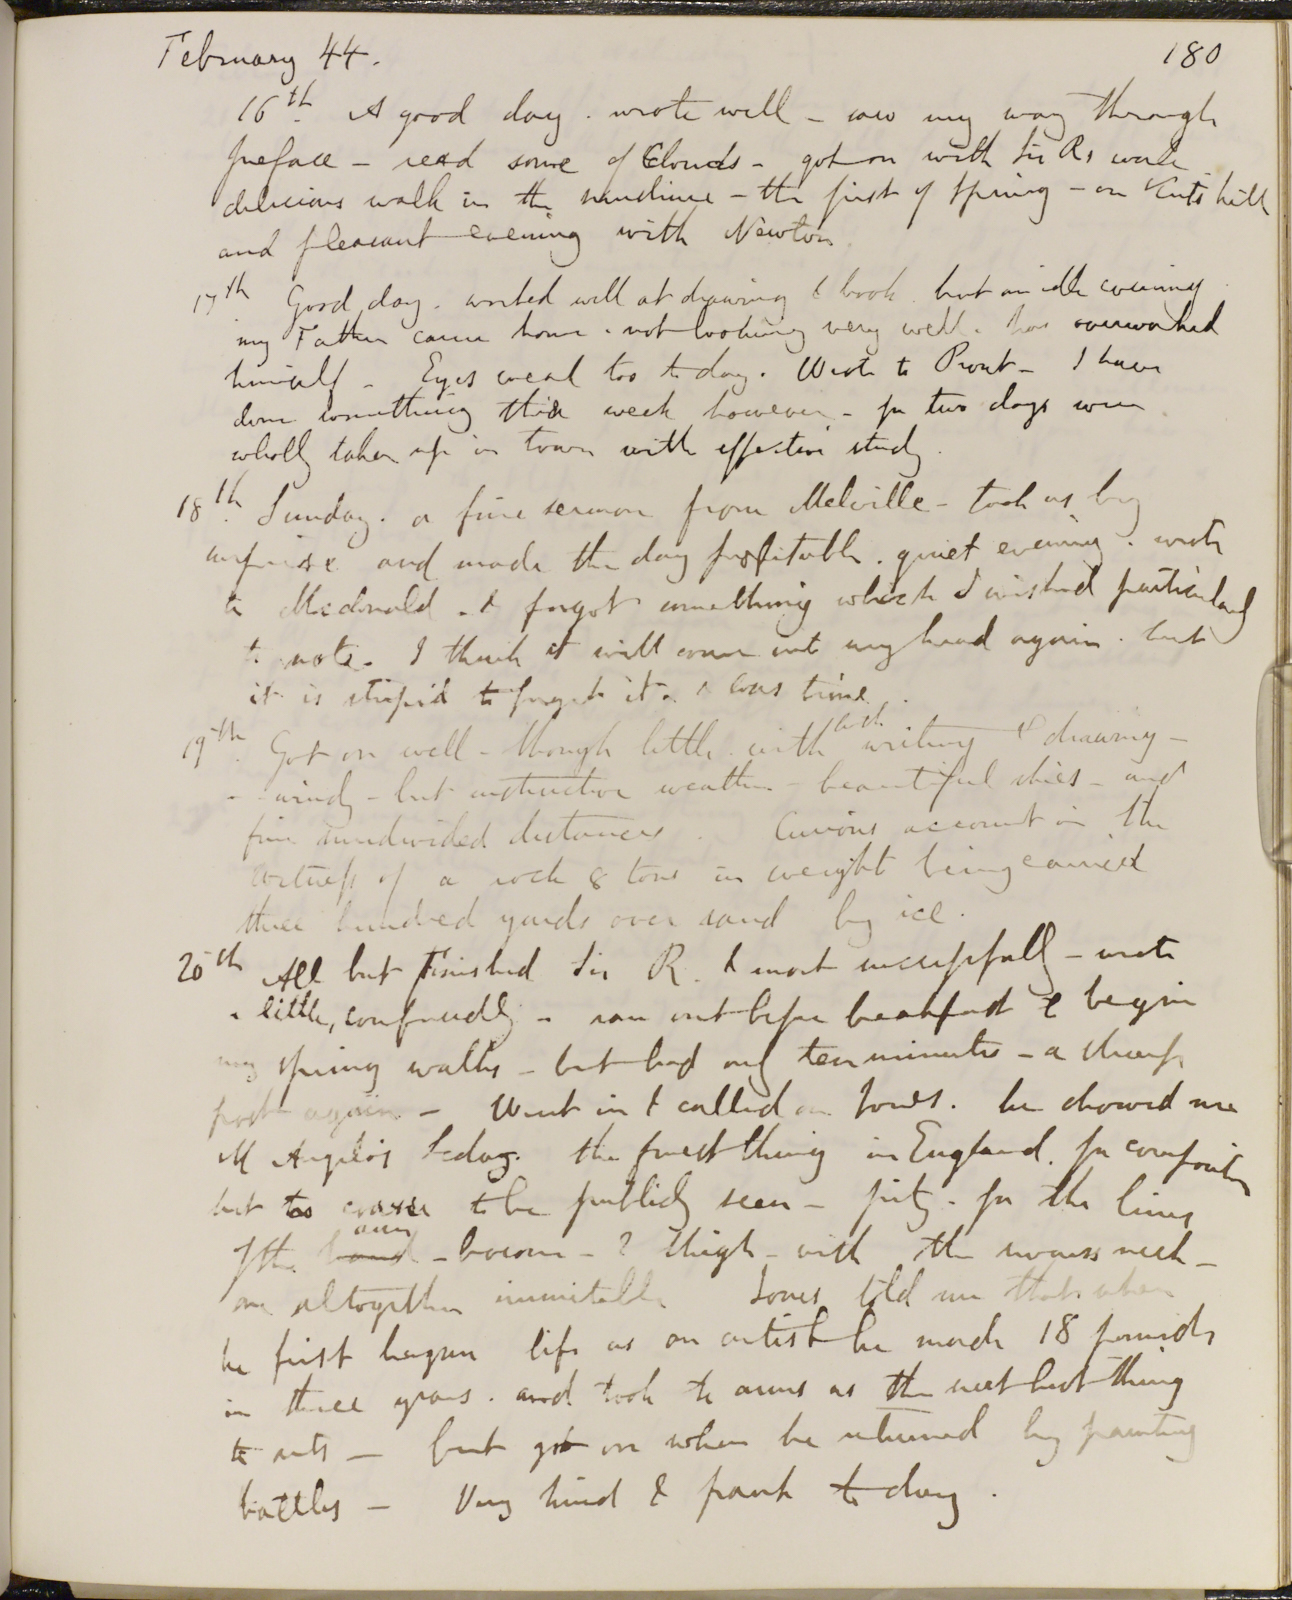 February 44.
180
16th. A good day. wrote well - saw my way through
preface - read some of Clouds - got on with Sir Rs work
delicious walk in the sunshine - the first of Spring - on hill
and pleasant evening with Newton.
17th Good day. worked well at drawing & book but an idle evening.
my Father came home. not looking very well. has overworked
himself - Eyes weak too to day. Wrote to Prout - I have
done something this week however - for two days were
wholly taken up in town with effective study.
18th. Sunday. a fine sermon from Melville - took us by
surprise and made the day profitable. quiet evening. wrote
to Macdonald - & forgot something which I wished particularly
to note. I think it will come into my head again. but
it is stupid to forget it. & loss time.
19th. Got on well - though little with both writing & drawing -
- windy - but instructive weather - beautiful skies - and
fine distances. Curious account in the
Witness of a rock 8 tons in weight being carried
three hundred yards over sand by ice.
20th All but Finished Sir R. & most successfully - wrote
a little, confusedly - ran out before breakfast & begin
my spring walks - but had only ten minutes - a sharp
frost again - Went in & called on Jones. he showed me
M Angelo's Leda. the finest thing in England. for composition
but too coarse to be publicly seen - pity - for the lines
of the hand arm - bosom - & thigh - with the swans neck -
are altogether inimitable Jones told me that when
he first began life as an artist he made 18 pounds
in three years. and took to arms as the next best thing
to arts - but got on when he returned by painting
battles - Very kind & frank to day.